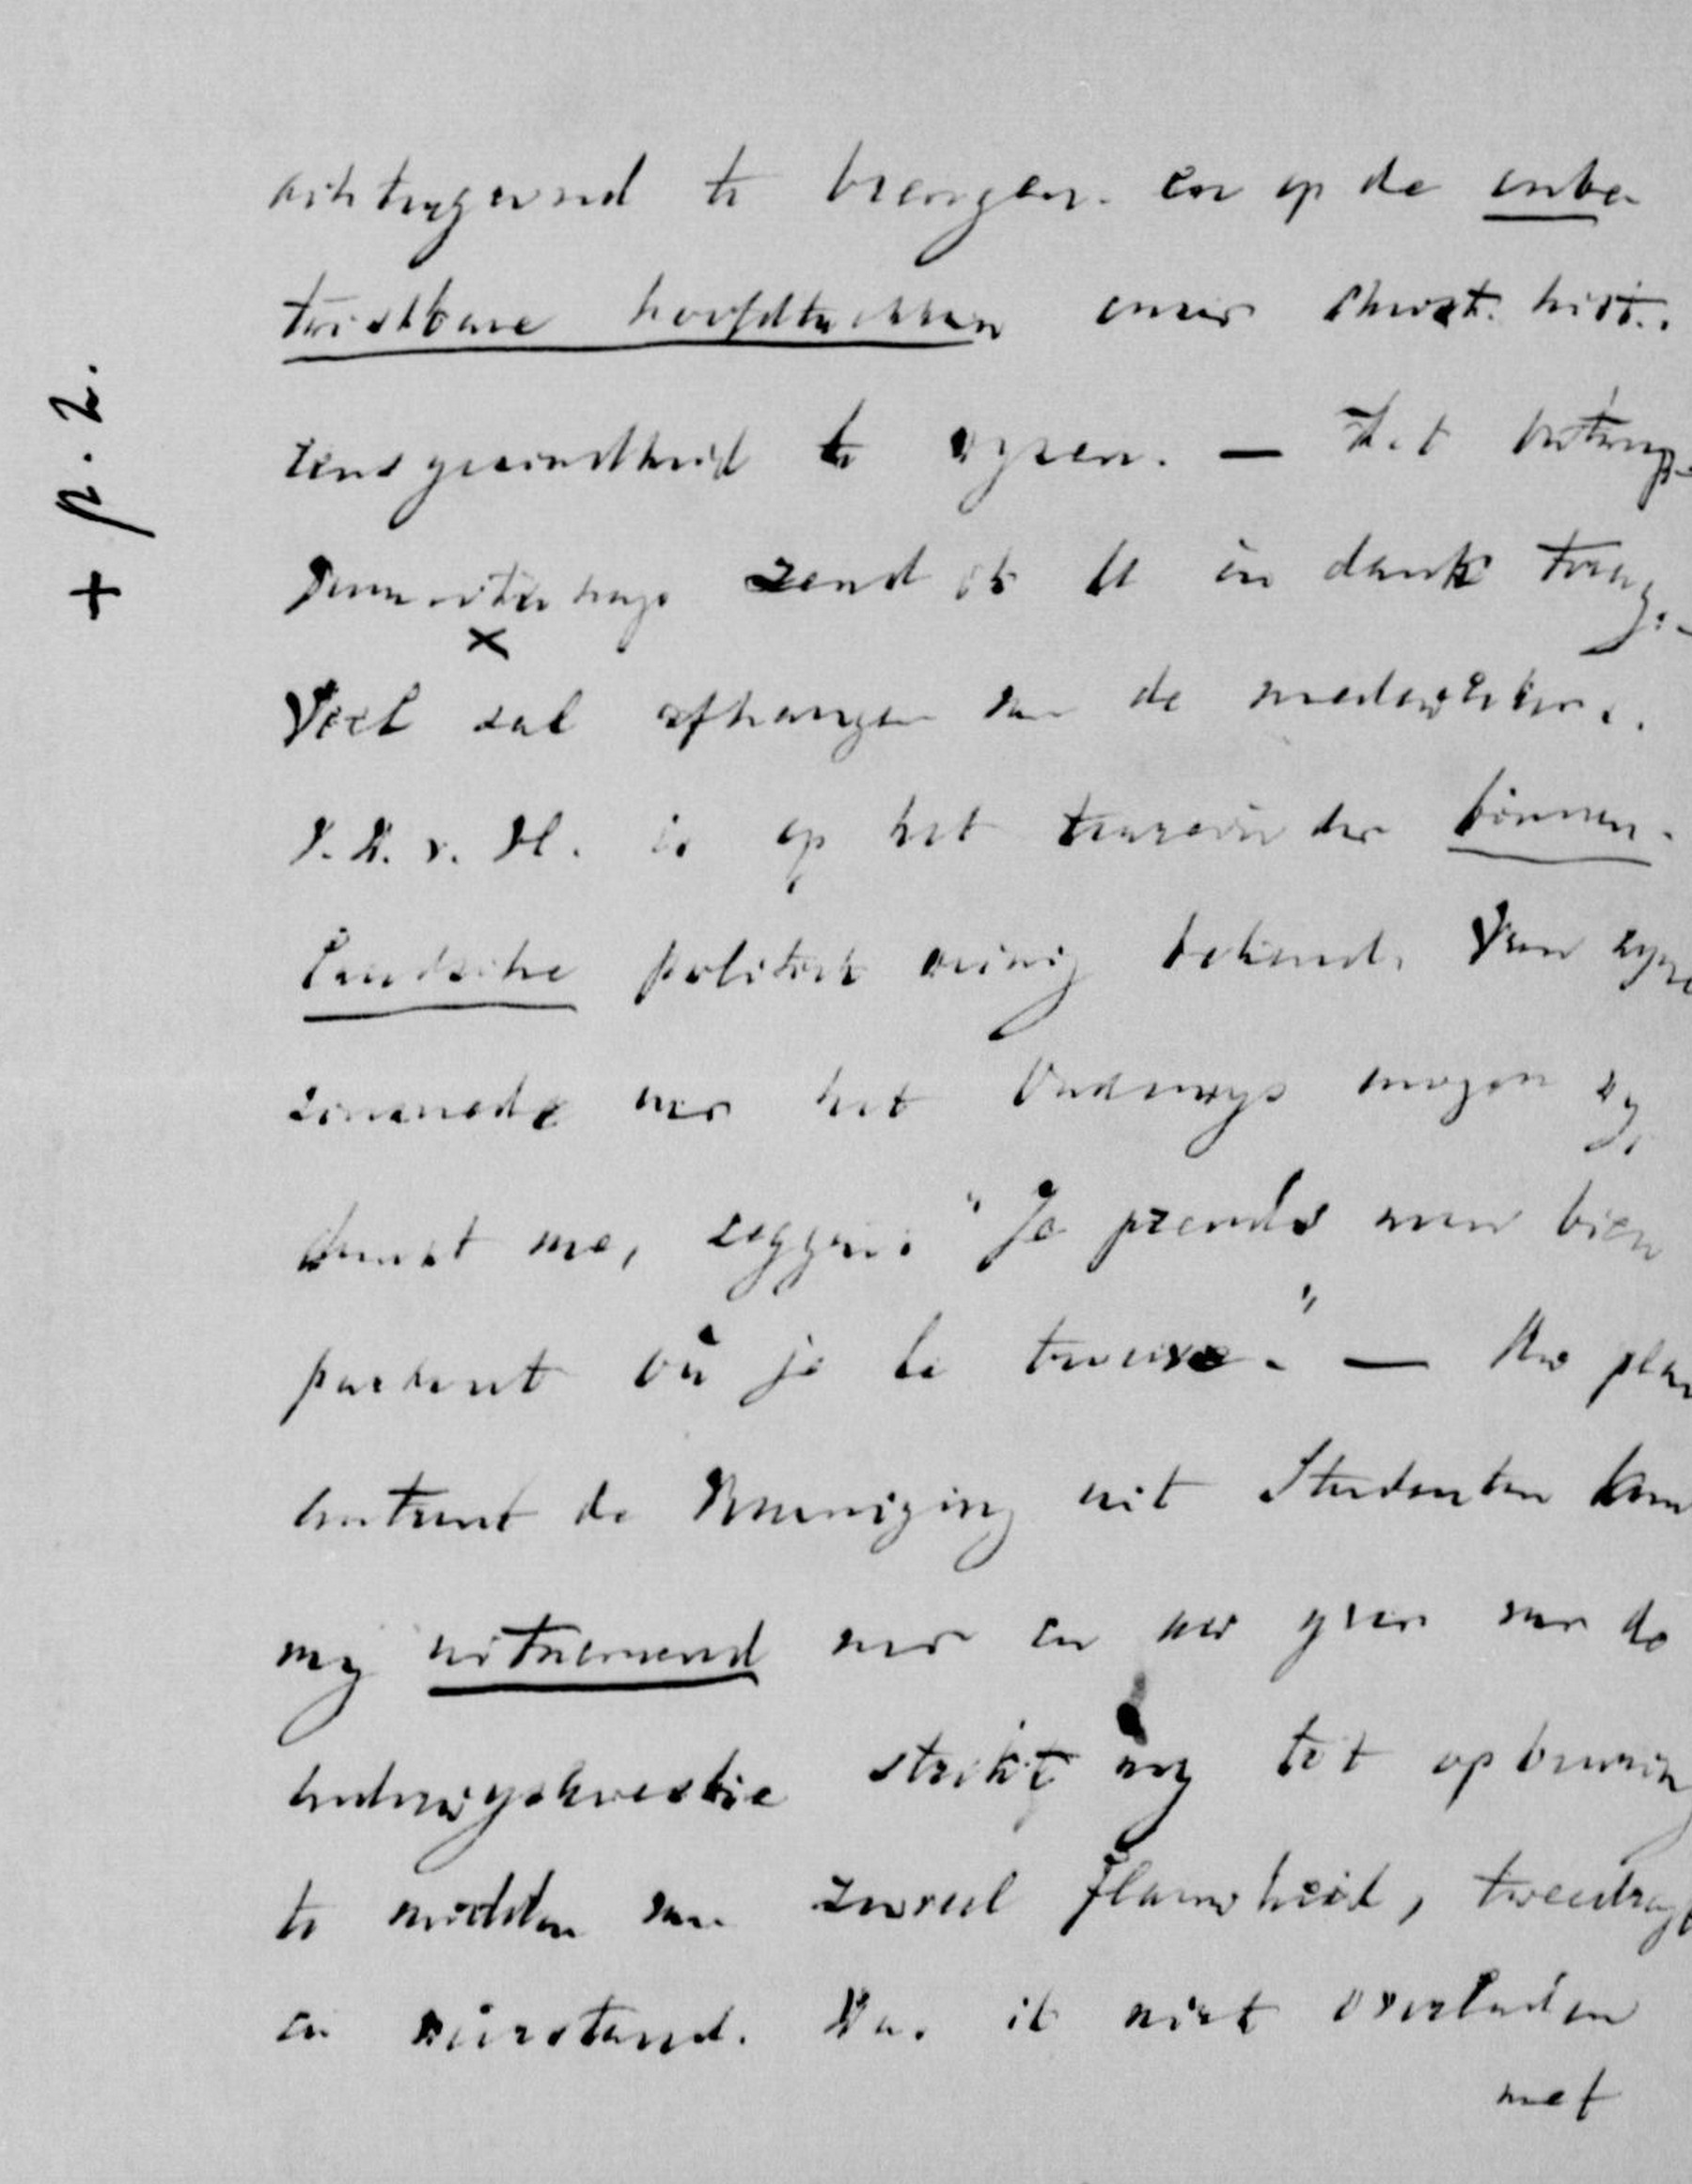 + p. 2.
achtergrond te brengen. en op de onbe
twistbare hoofdtrekken onzer Christ. hist.
tensgezindheid te wyzen. — Het ontwerp-
zend ik U in dank terug. -
×
Veel zal afhangen van de medewerkers.
is op het terrein der binnen-
landsche politiek weinig bekend. Van zyne
zienswyze over het Onderwys mogen wy,
dunkt me, zeggen: "Je prends mon bien
partout où je le trouve." — Uw plan
omtrent de Vereeniging uit Studenten kom
my uitnemend voor en uw yver voor de
onderwyskwestie strekt my tot opbeuring
te midden van zooveel flauwheid, tweedragt
en misverstand. Was ik niet overladen
met